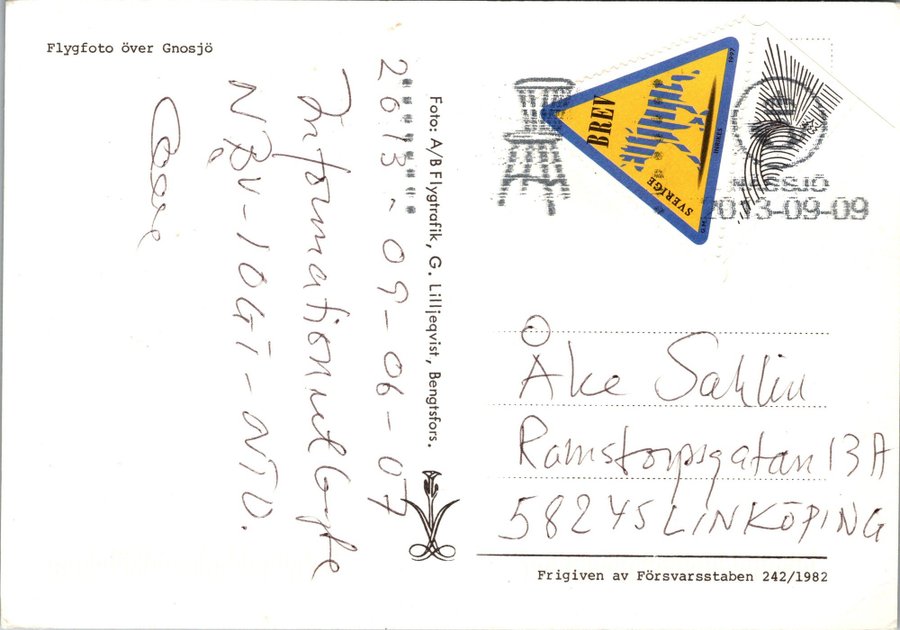 Flygfoto över Gnosjö
2013-09-06-07
Informationsutbyte
NBV-JOGI-NTO.
Foto: A/B Flygtrafik, G. Lilljeqvist, Bengtsfors.
BREV
SVERIGE
INRIKES
1997
G.M.
NÄSSJÖ
2013-09-09
Åke Sahlin
Ramstorpsgatan 13A
58245 LINKÖPING
Frigiven av Försvarsstaben 242/1982